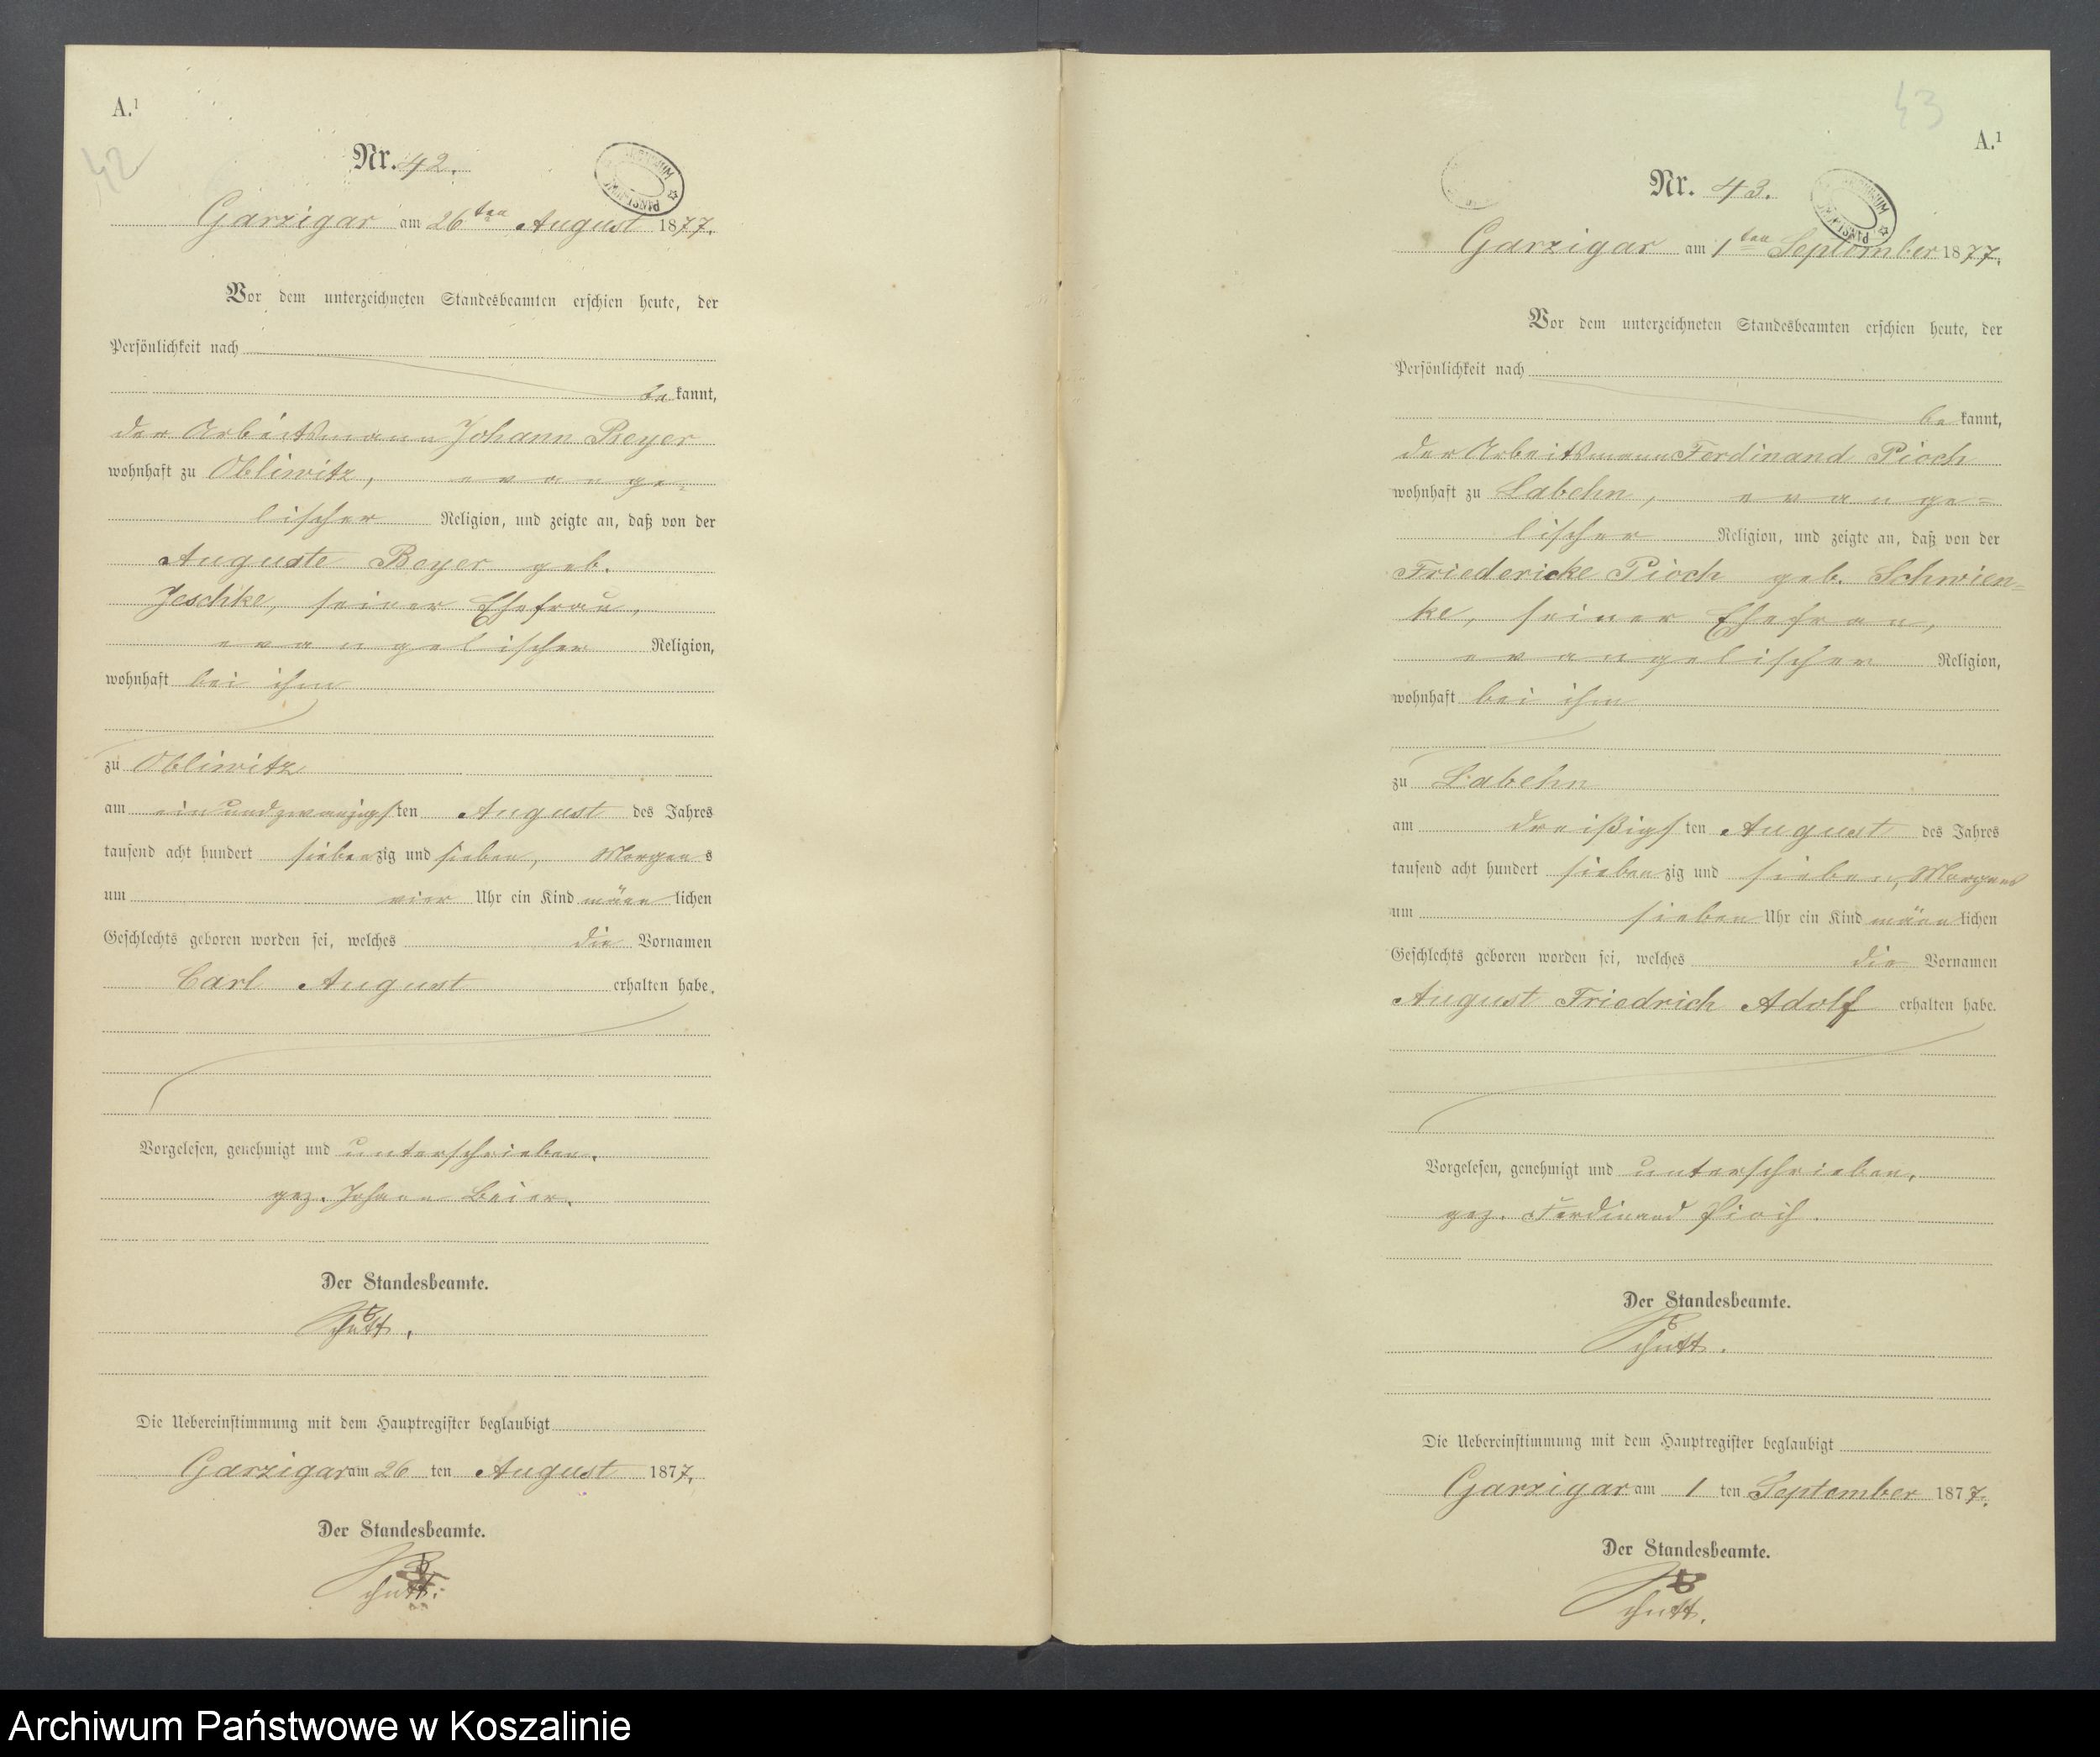 A.¹
42
Nr. 42.
Garzigar am 26ten August 1877.
Vor dem unterzeichneten Standesbeamten erschien heute, der
Persönlichkeit nach
bekannt,
der Arbeitsmann Johann Beyer
wohnhaft zu Obliwitz, evange=
lischer Religion, und zeigte an, daß von der
Auguste Beyer geb.
Jeschke, seiner Ehefrau,
evangelischer Religion,
wohnhaft bei ihm
zu Obliwitz
am einundzwanzigsten August des Jahres
tausend acht hundert siebenzig und sieben, Morgens
um vier Uhr ein Kind männlichen
Geschlechts geboren worden sei, welches die Vornamen
Carl August erhalten habe.
Vorgelesen, genehmigt und unterschrieben.
gez. Johann Beier.
Der Standesbeamte.
Schütt.
Die Uebereinstimmung mit dem Hauptregister beglaubigt
Garzigar am 26 ten August 1877.
Der Standesbeamte.
Schütt.
43
A.¹
Nr. 43.
Garzigar am 1ten September 1877.
Vor dem unterzeichneten Standesbeamten erschien heute, der
Persönlichkeit nach
bekannt,
der Arbeitsmann Ferdinand Pioch
wohnhaft zu Labehn, evange=
lischer Religion, und zeigte an, daß von der
Friedericke Pioch geb. Schwien=
ke, seiner Ehefrau,
evangelischer Religion,
wohnhaft bei ihm
zu Labehn
am dreißigsten August des Jahres
tausend acht hundert siebenzig und sieben, Morgens
um sieben Uhr ein Kind männlichen
Geschlechts geboren worden sei, welches die Vornamen
August Friedrich Adolf erhalten habe.
Vorgelesen, genehmigt und unterschrieben.
gez. Ferdinand Pioch.
Der Standesbeamte.
Schütt.
Die Uebereinstimmung mit dem Hauptregister beglaubigt
Garzigar am 1 ten September 1877.
Der Standesbeamte.
Schütt.
Archiwum Państwowe w Koszalinie